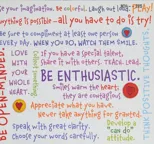 Be your imagine. Be colorful. Laugh out loud. Play!
anything is possible – all you have to do is try!
Be sure to compliment at least one person
EVERY DAY. WHEN YOU DO, WATCH THEM SMILE.
LOVE
WITH
YOUR
WHOLE
HEART.
If you have a special talent,
share it with others. Teach. Lead.
BE ENTHUSIASTIC.
Smiles warm the heart;
they are contagious.
Appreciate what you have.
Never take anything for granted.
Speak with great clarity.
choose your words carefully.
Develop a
can do
attitude.
BE OPEN-MINDED.
POSITIVE THOUGHTS.